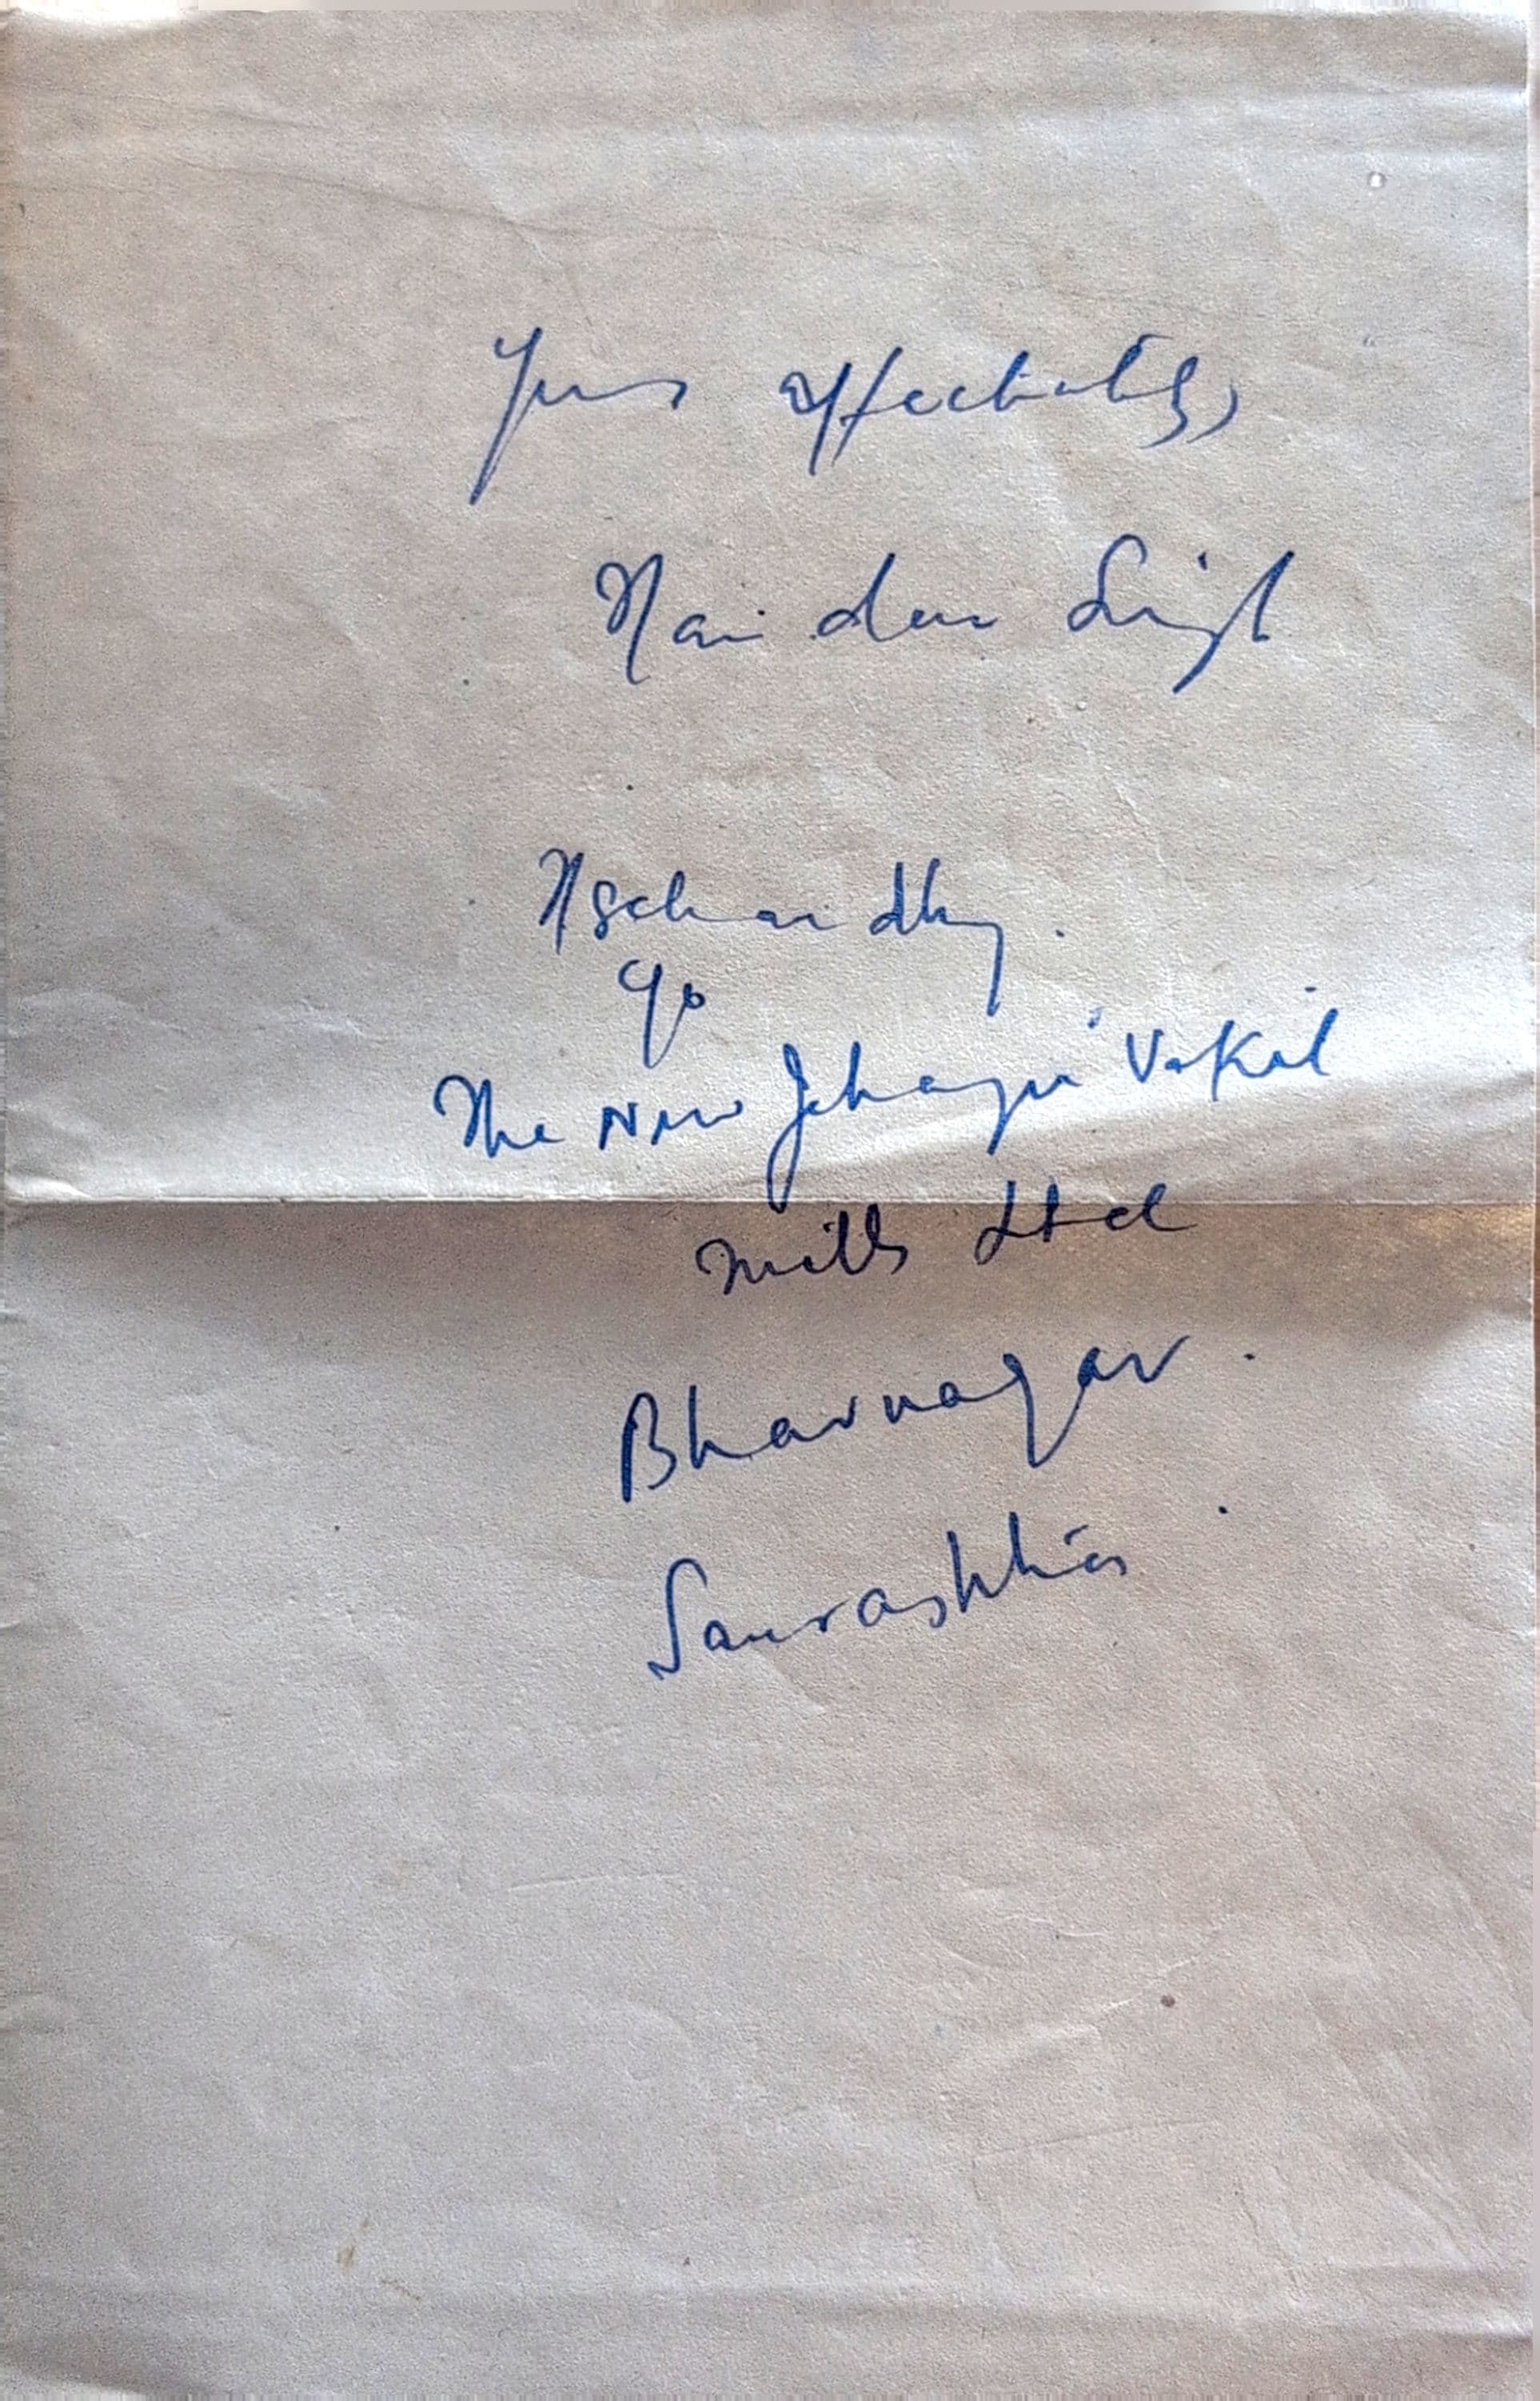 Yours affectionately,
Narinder Singh
N S Chaudhry.
c/o
The New Jehangir Vakil
Mills Ltd
Bhavnagar.
Saurashtra